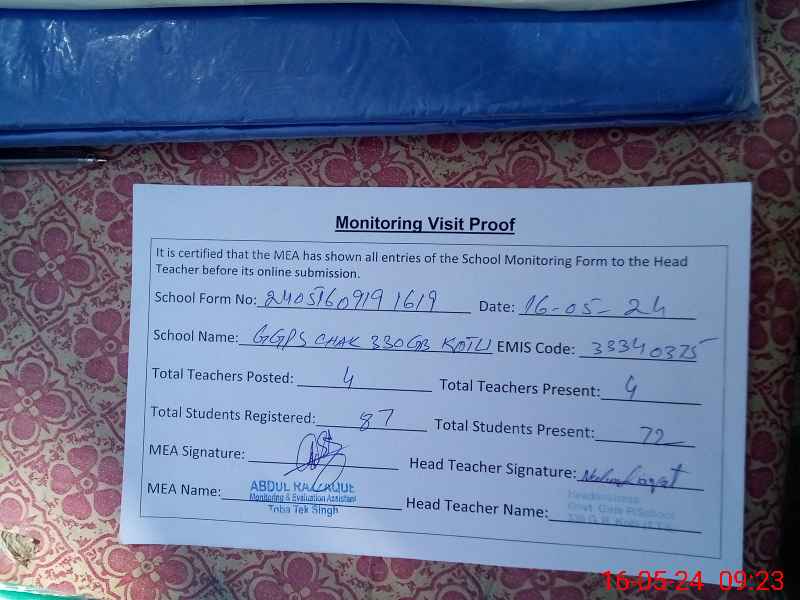 Monitoring Visit Proof
It is certified that the MEA has shown all entries of the School Monitoring Form to the Head
Teacher before its online submission.
School Form No: 2405160919 1619 Date: 16-05-24
School Name: GGPS CHAK 330GB KOTLI EMIS Code: 33340375
Total Teachers Posted: 4 Total Teachers Present: 4
Total Students Registered: 87 Total Students Present: 72
MEA Signature: Head Teacher Signature:
MEA Name: ABDUL RAZZAQUE Head Teacher Name: Headmistress
Monitoring & Evaluation Assistant Govt. Girls P/School
Toba Tek Singh
16-05-24 09:23